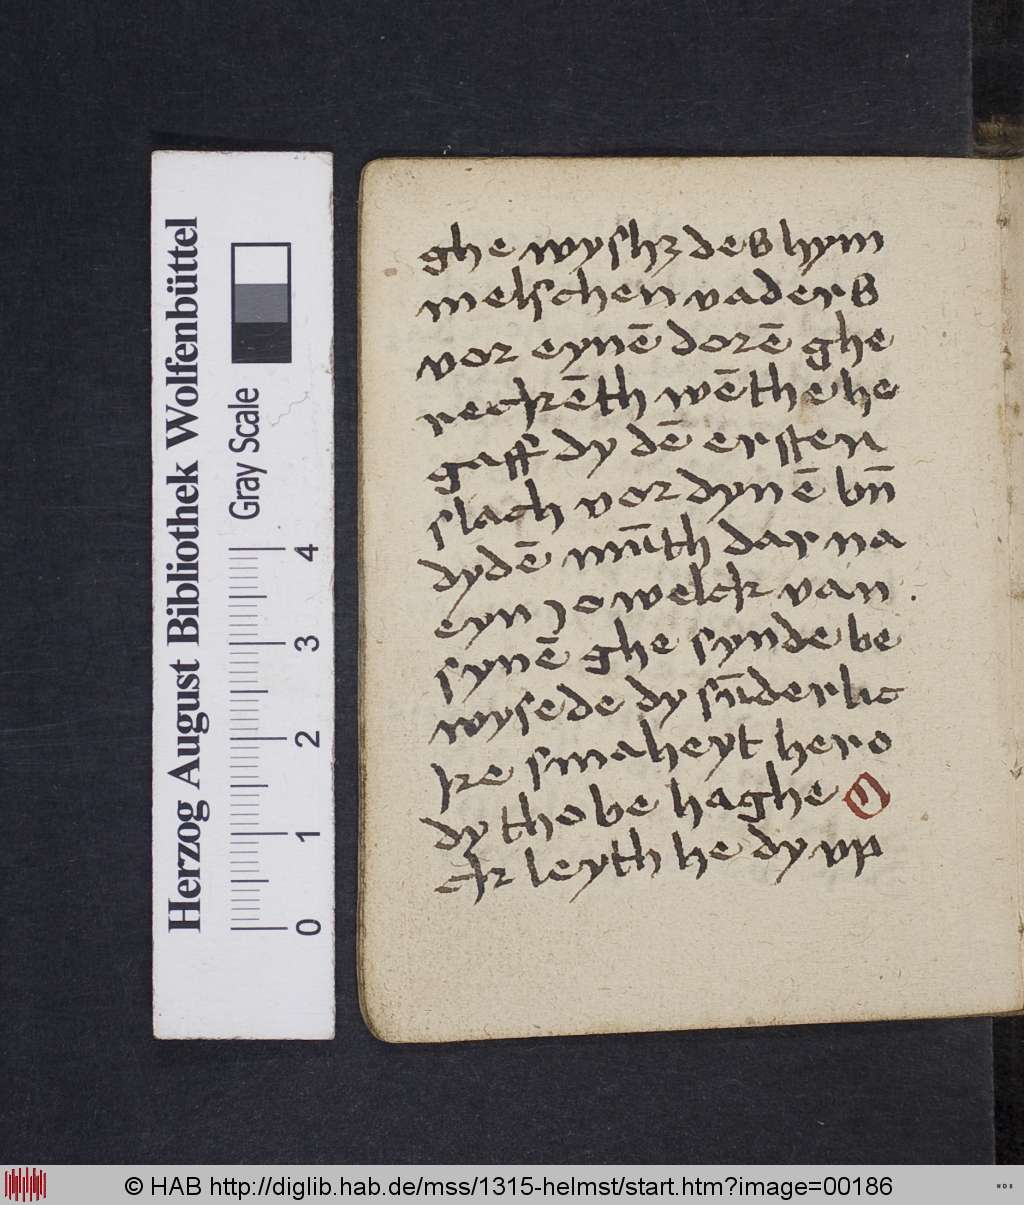 ghe wyshꝫ des hym
melschen vaders
vor eynē dorē ghe
reckēth wēthe he
gaff dy dē ersten
slach vor dynē vn̄
dydē mn̄th dar na
eyn jowelck van
synē ghe synde be
wysede dy sn̄derlic
ke smaheyt hero
dy tho be haghe O
ck leyth he dy vp
Herzog August Bibliothek Wolfenbüttel
Gray Scale
0 1 2 3 4
© HAB http://diglib.hab.de/mss/1315-helmst/start.htm?image=00186